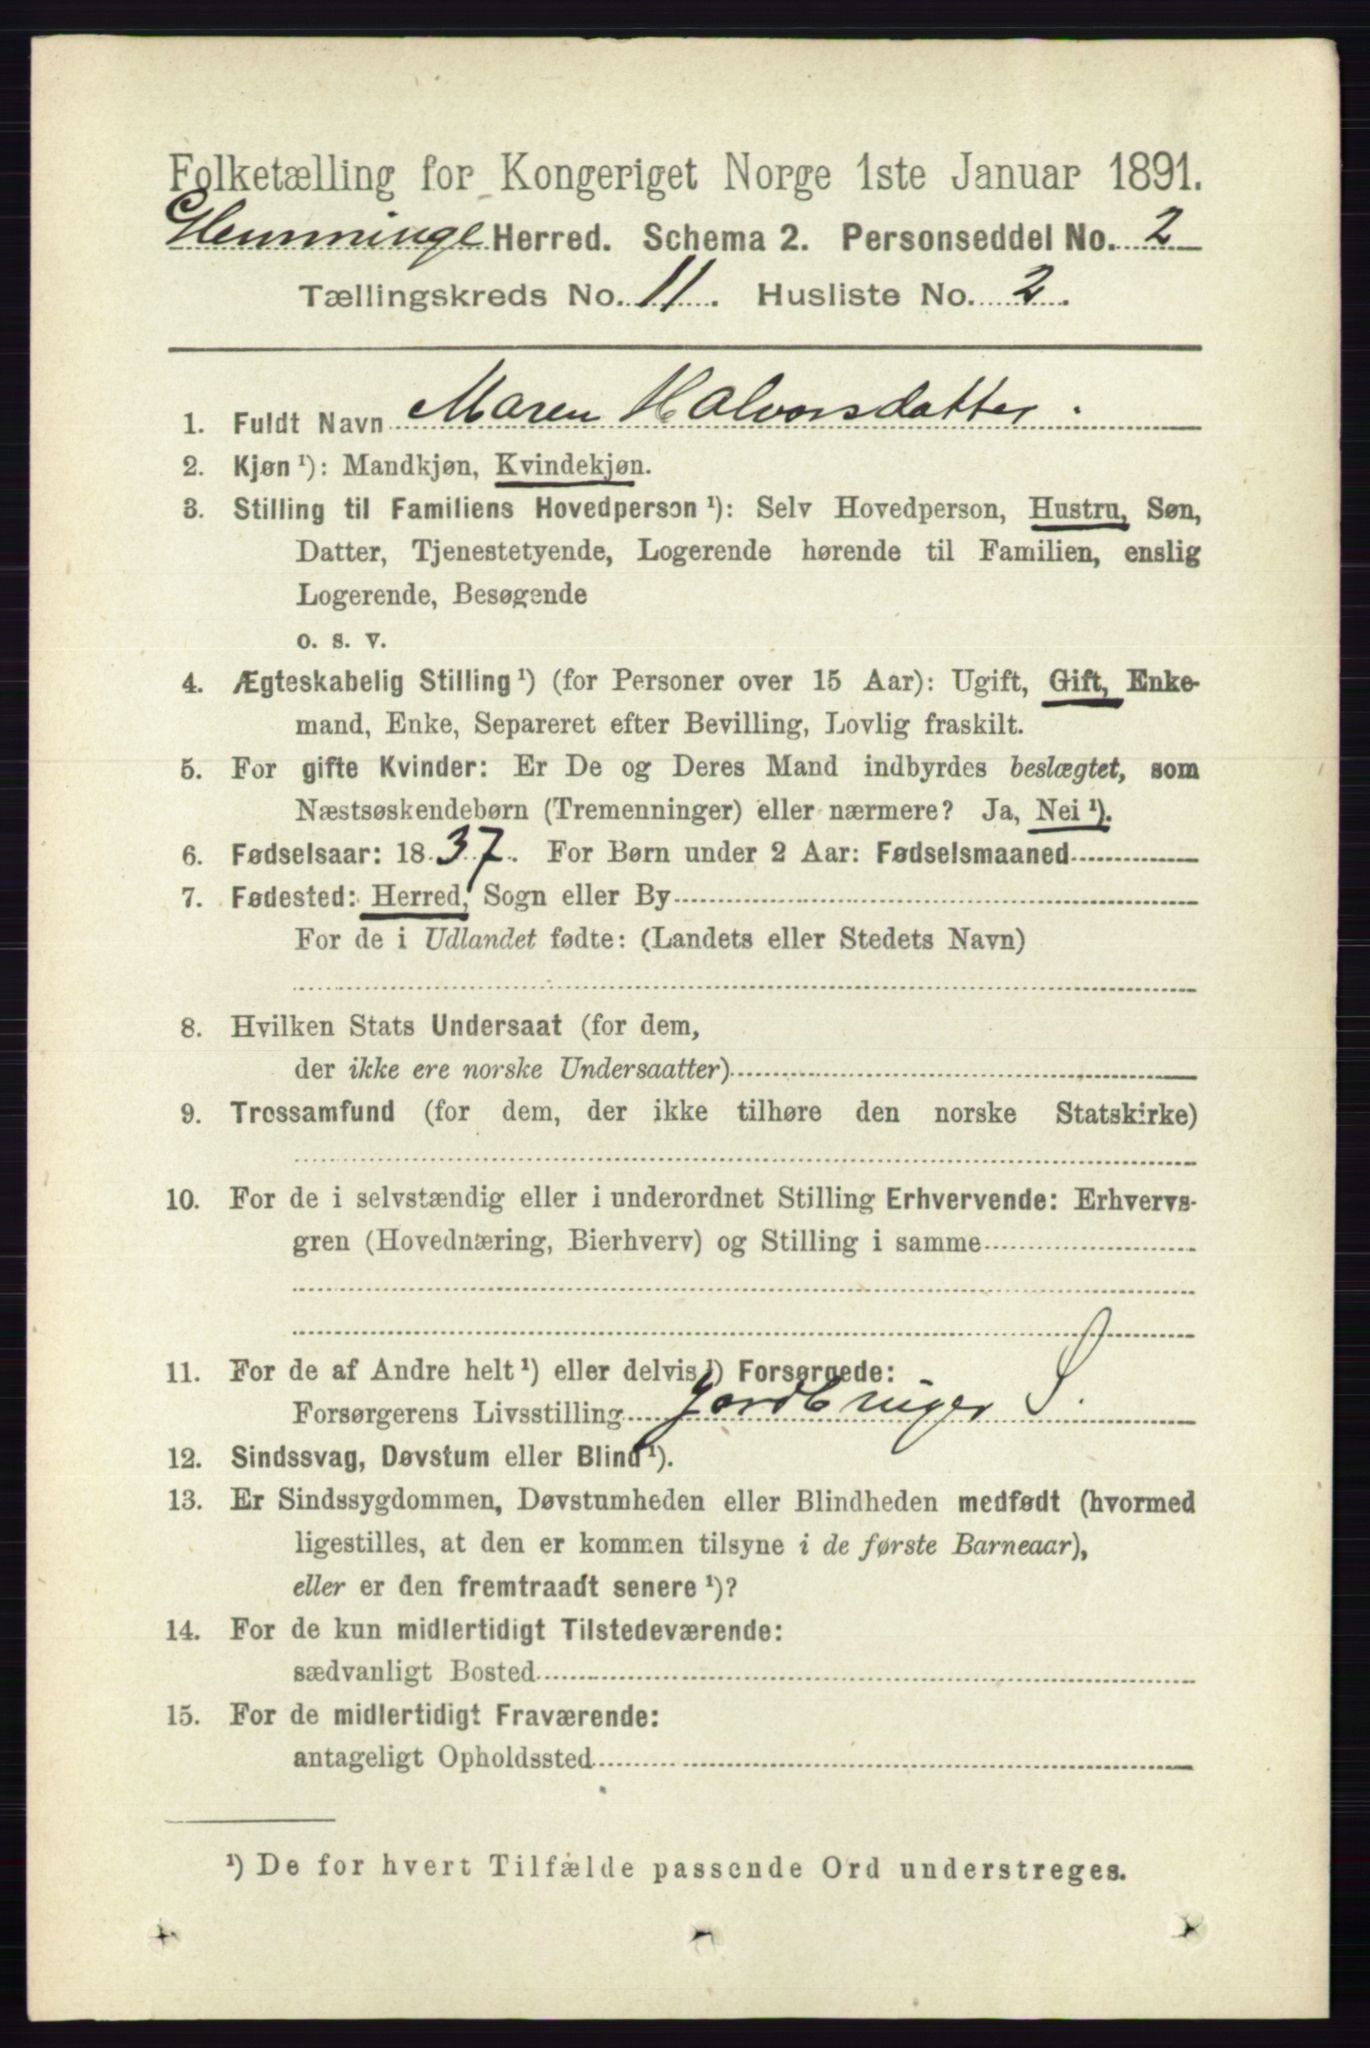 Folketælling for Kongeriget Norge 1ste Januar 1891.
Herred. Schema 2. Personseddel No. 2
Tællingskreds No. 11. Husliste No. 2.
1. Fuldt Navn Maren Halvorsdatter.
2. Kjøn ¹): Mandkjøn, Kvindekjøn.
3. Stilling til Familiens Hovedperson ¹): Selv Hovedperson, Hustru, Søn,
Datter, Tjenestetyende, Logerende hørende til Familien, enslig
Logerende, Besøgende
o. s. v.
4. Ægteskabelig Stilling ¹) (for Personer over 15 Aar): Ugift, Gift, Enke-
mand, Enke, Separeret efter Bevilling, Lovlig fraskilt.
5. For gifte Kvinder: Er De og Deres Mand indbyrdes beslægtet, som
Næstsøskendebørn (Tremenninger) eller nærmere? Ja, Nei ¹).
6. Fødselsaar: 1837. For Børn under 2 Aar: Fødselsmaaned
7. Fødested: Herred, Sogn eller By
For de i Udlandet fødte: (Landets eller Stedets Navn)
8. Hvilken Stats Undersaat (for dem,
der ikke ere norske Undersaatter)
9. Trossamfund (for dem, der ikke tilhøre den norske Statskirke)
10. For de i selvstændig eller i underordnet Stilling Erhvervende: Erhvervs-
gren (Hovednæring, Bierhverv) og Stilling i samme
11. For de af Andre helt ¹) eller delvis ¹) Forsørgede:
Forsørgerens Livsstilling Jordbruger S.
12. Sindssvag, Døvstum eller Blind ¹).
13. Er Sindssygdommen, Døvstumheden eller Blindheden medfødt (hvormed
ligestilles, at den er kommen tilsyne i de første Barneaar),
eller er den fremtraadt senere ¹)?
14. For de kun midlertidigt Tilstedeværende:
sædvanligt Bosted
15. For de midlertidigt Fraværende:
antageligt Opholdssted
¹) De for hvert Tilfælde passende Ord understreges.